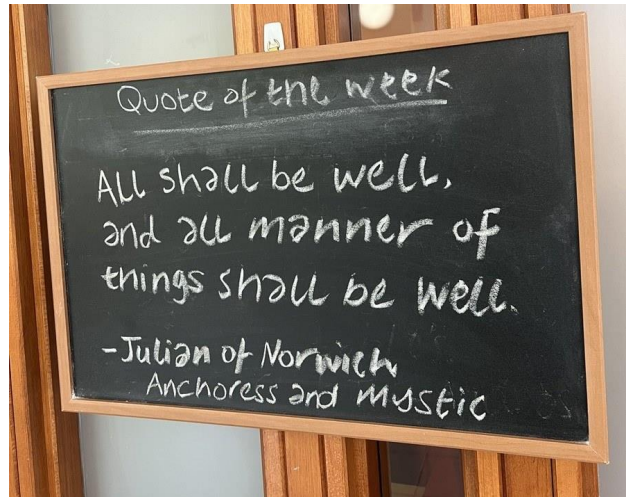 Quote of the week
All shall be well,
and all manner of
things shall be well.
-Julian of Norwich
Anchoress and mystic